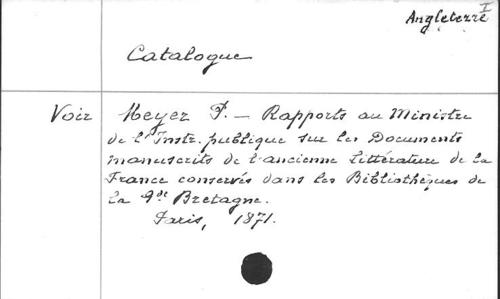 Angleterre I
Catalogue
Voir Meyer P. — Rapports au Ministre
de l'Instr. publique sur les Documents
manuscrits de l'ancienne Littérature de la
France conservés dans les Bibliothèques de
la Gde Bretagne.
Paris, 1871.